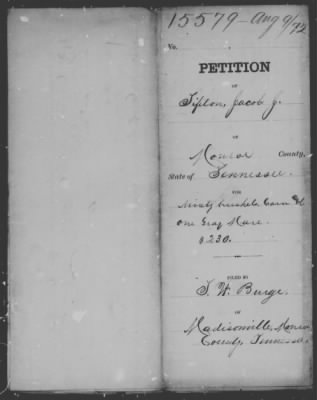 15579 - Aug 9/72
No.
PETITION
OF
Tipton, Jacob J.
OF
Monroe County,
State of Tennessee.
FOR
Ninety bushels Corn &
one Gray Mare.
$230.
FILED BY
T. W. Burge.
OF
Madisonville, Monroe
County, Tennessee